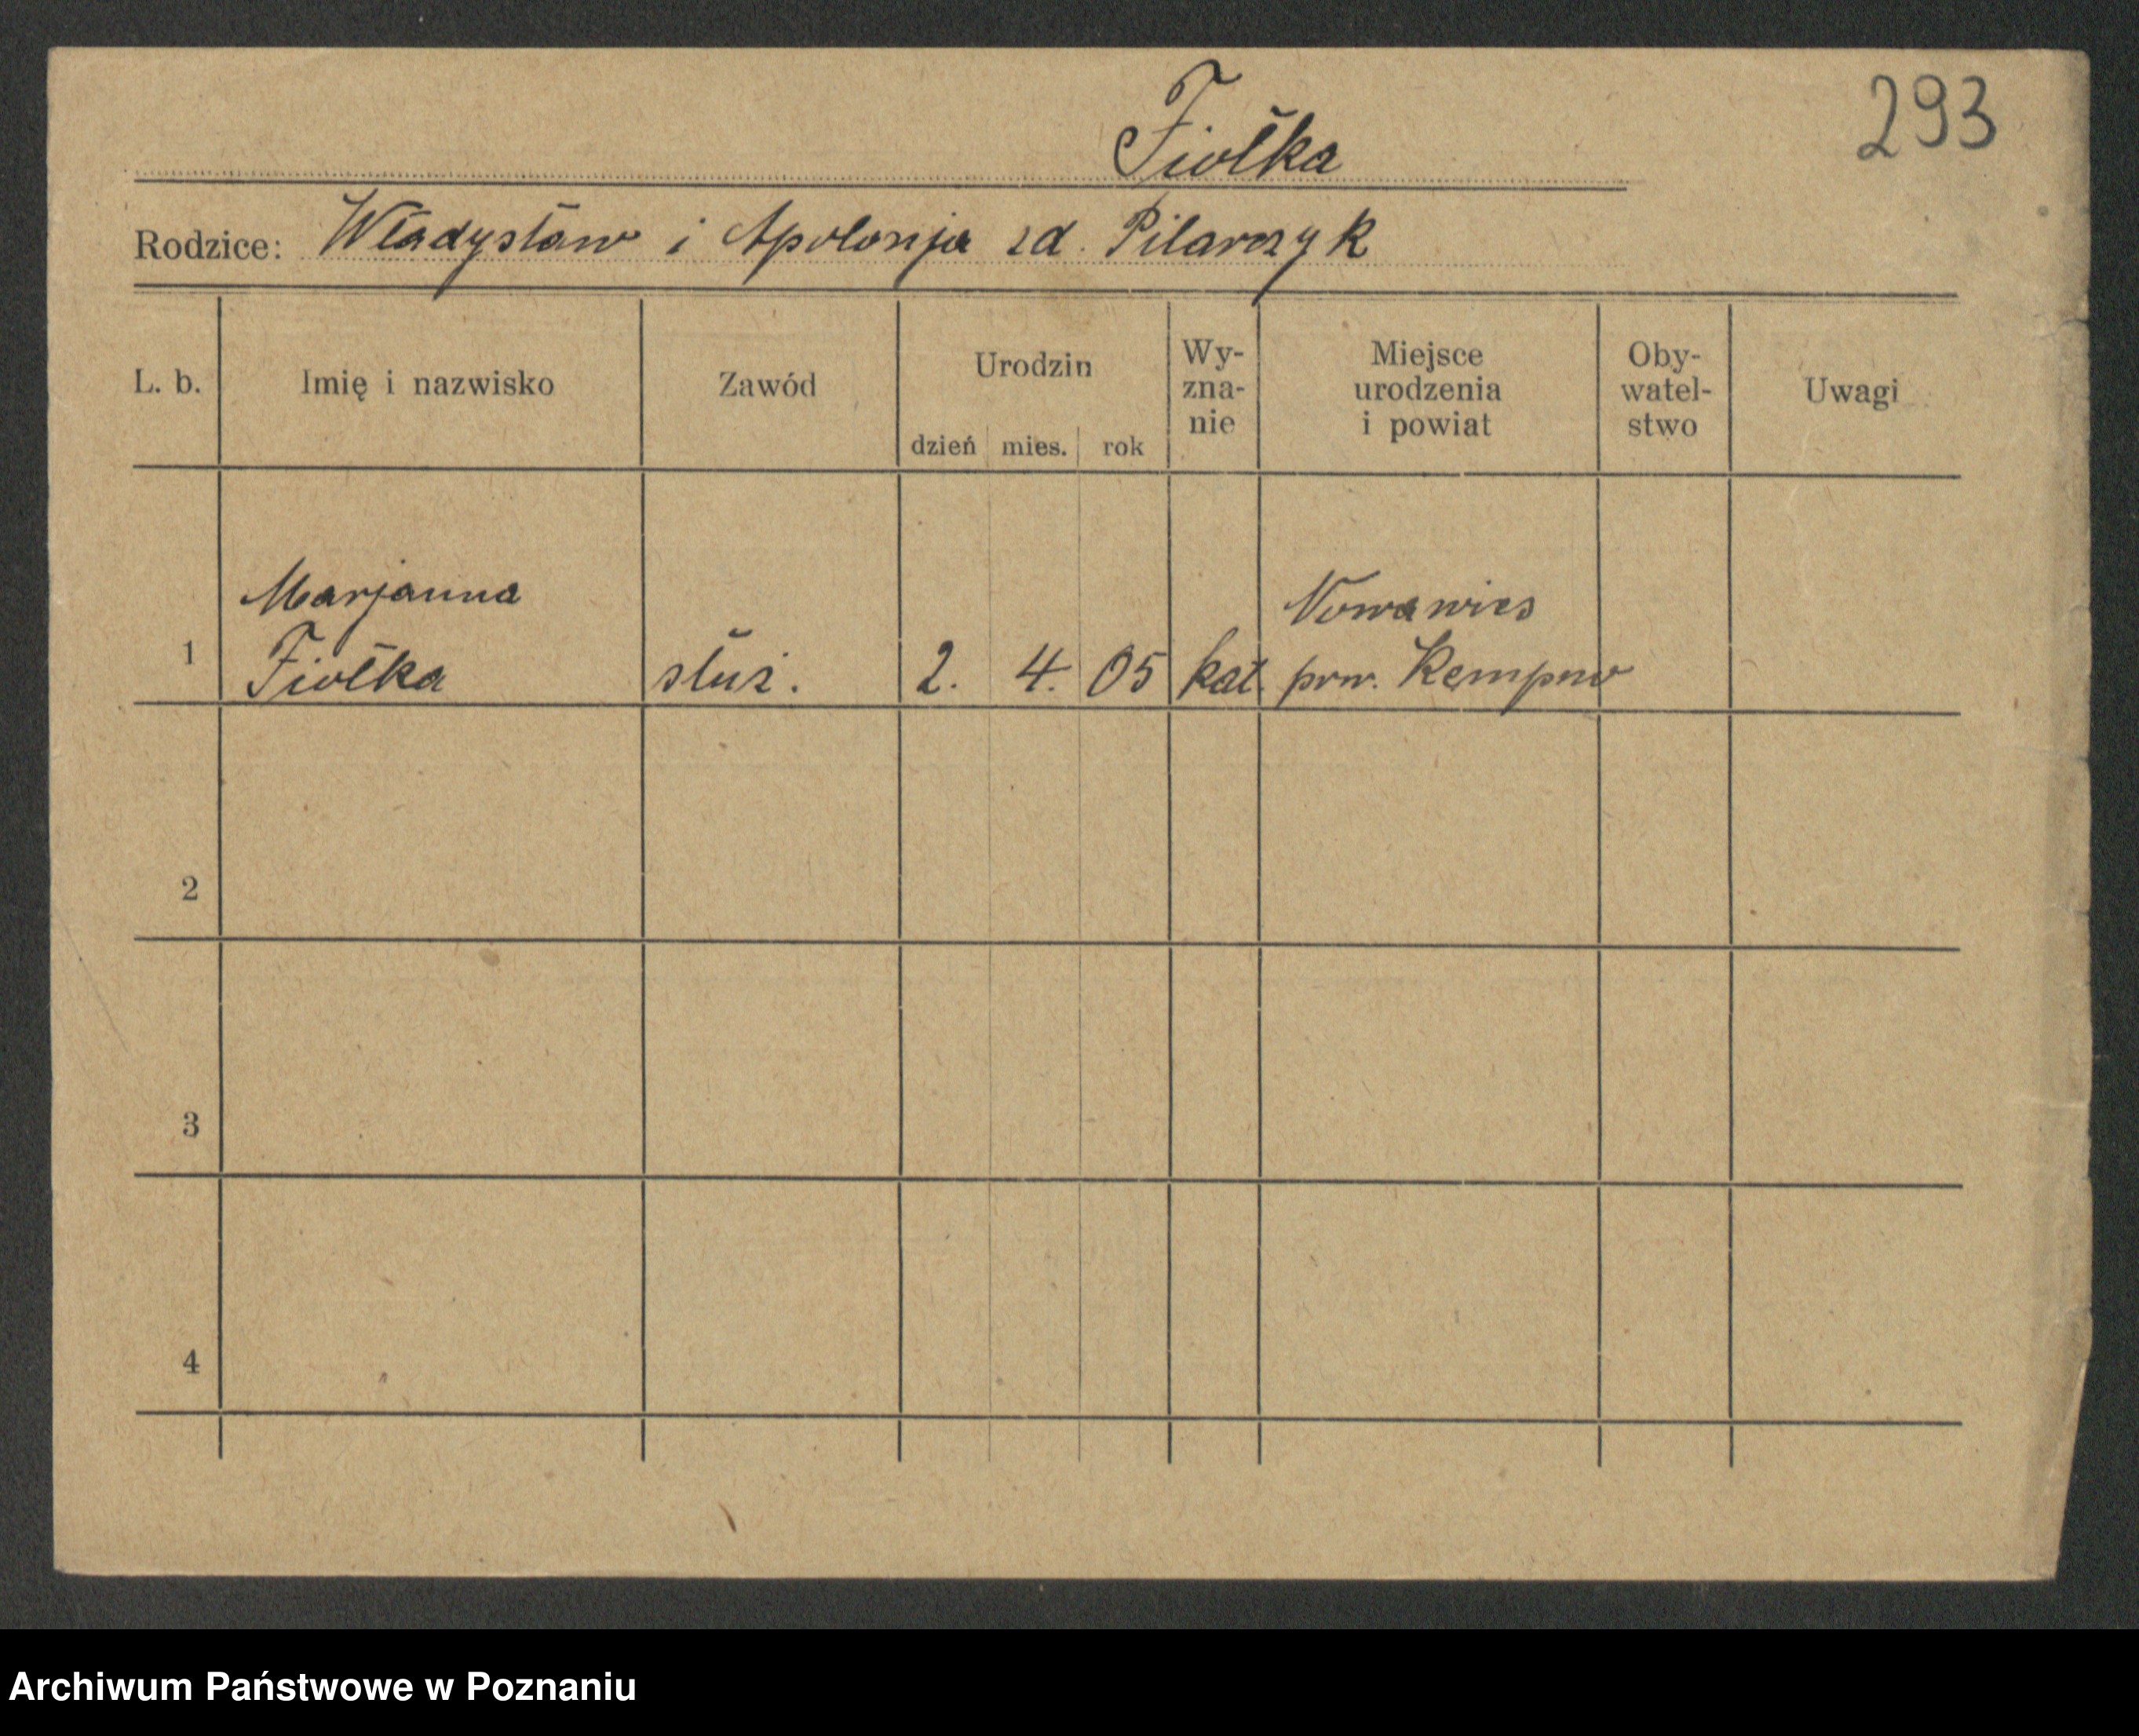 293
Fiołka
Rodzice: Władysław i Apolonja zd. Pilarczyk
L. b.
Imię i nazwisko
Zawód
Urodzin
dzień mies. rok
Wy-
zna-
nie
Miejsce
urodzenia
i powiat
Oby-
watel-
stwo
Uwagi
Marjanna
Nowawies
1 Fiołka służ. 2. 4. 05 kat. pow. Kempno
2
3
4
Archiwum Państwowe w Poznaniu